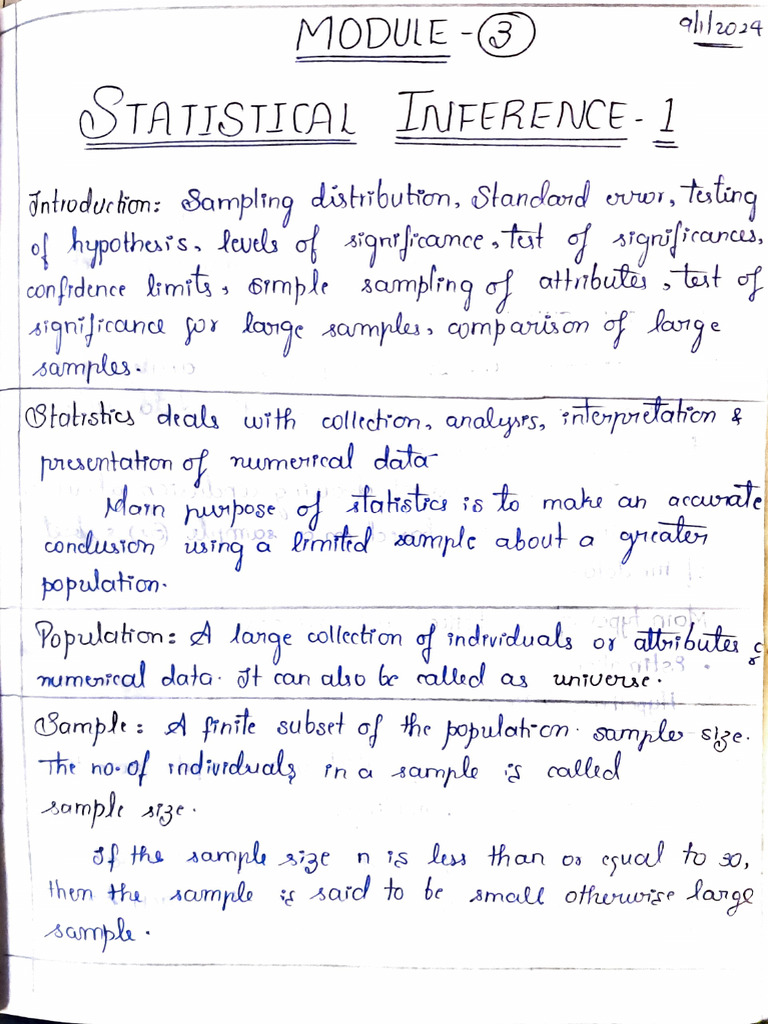 MODULE - 3
9/1/2024
STATISTICAL INFERENCE - 1
Introduction: Sampling distribution, Standard error, Testing
of hypothesis, levels of significance, test of significances,
confidence limits, simple sampling of attributes, test of
significance for large samples, comparison of large
samples.
Statistics deals with collection, analysis, interpretation &
presentation of numerical data
Main purpose of statistics is to make an accurate
conclusion using a limited sample about a greater
population.
Population: A large collection of individuals or attributes or
numerical data. It can also be called as universe.
Sample: A finite subset of the population. sample size.
The no. of individuals in a sample is called
sample size.
If the sample size n is less than or equal to 30,
then the sample is said to be small otherwise large
sample.